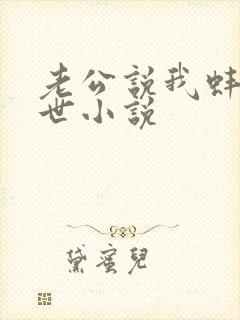 老公說我蚌
世小說
黛蜜兒